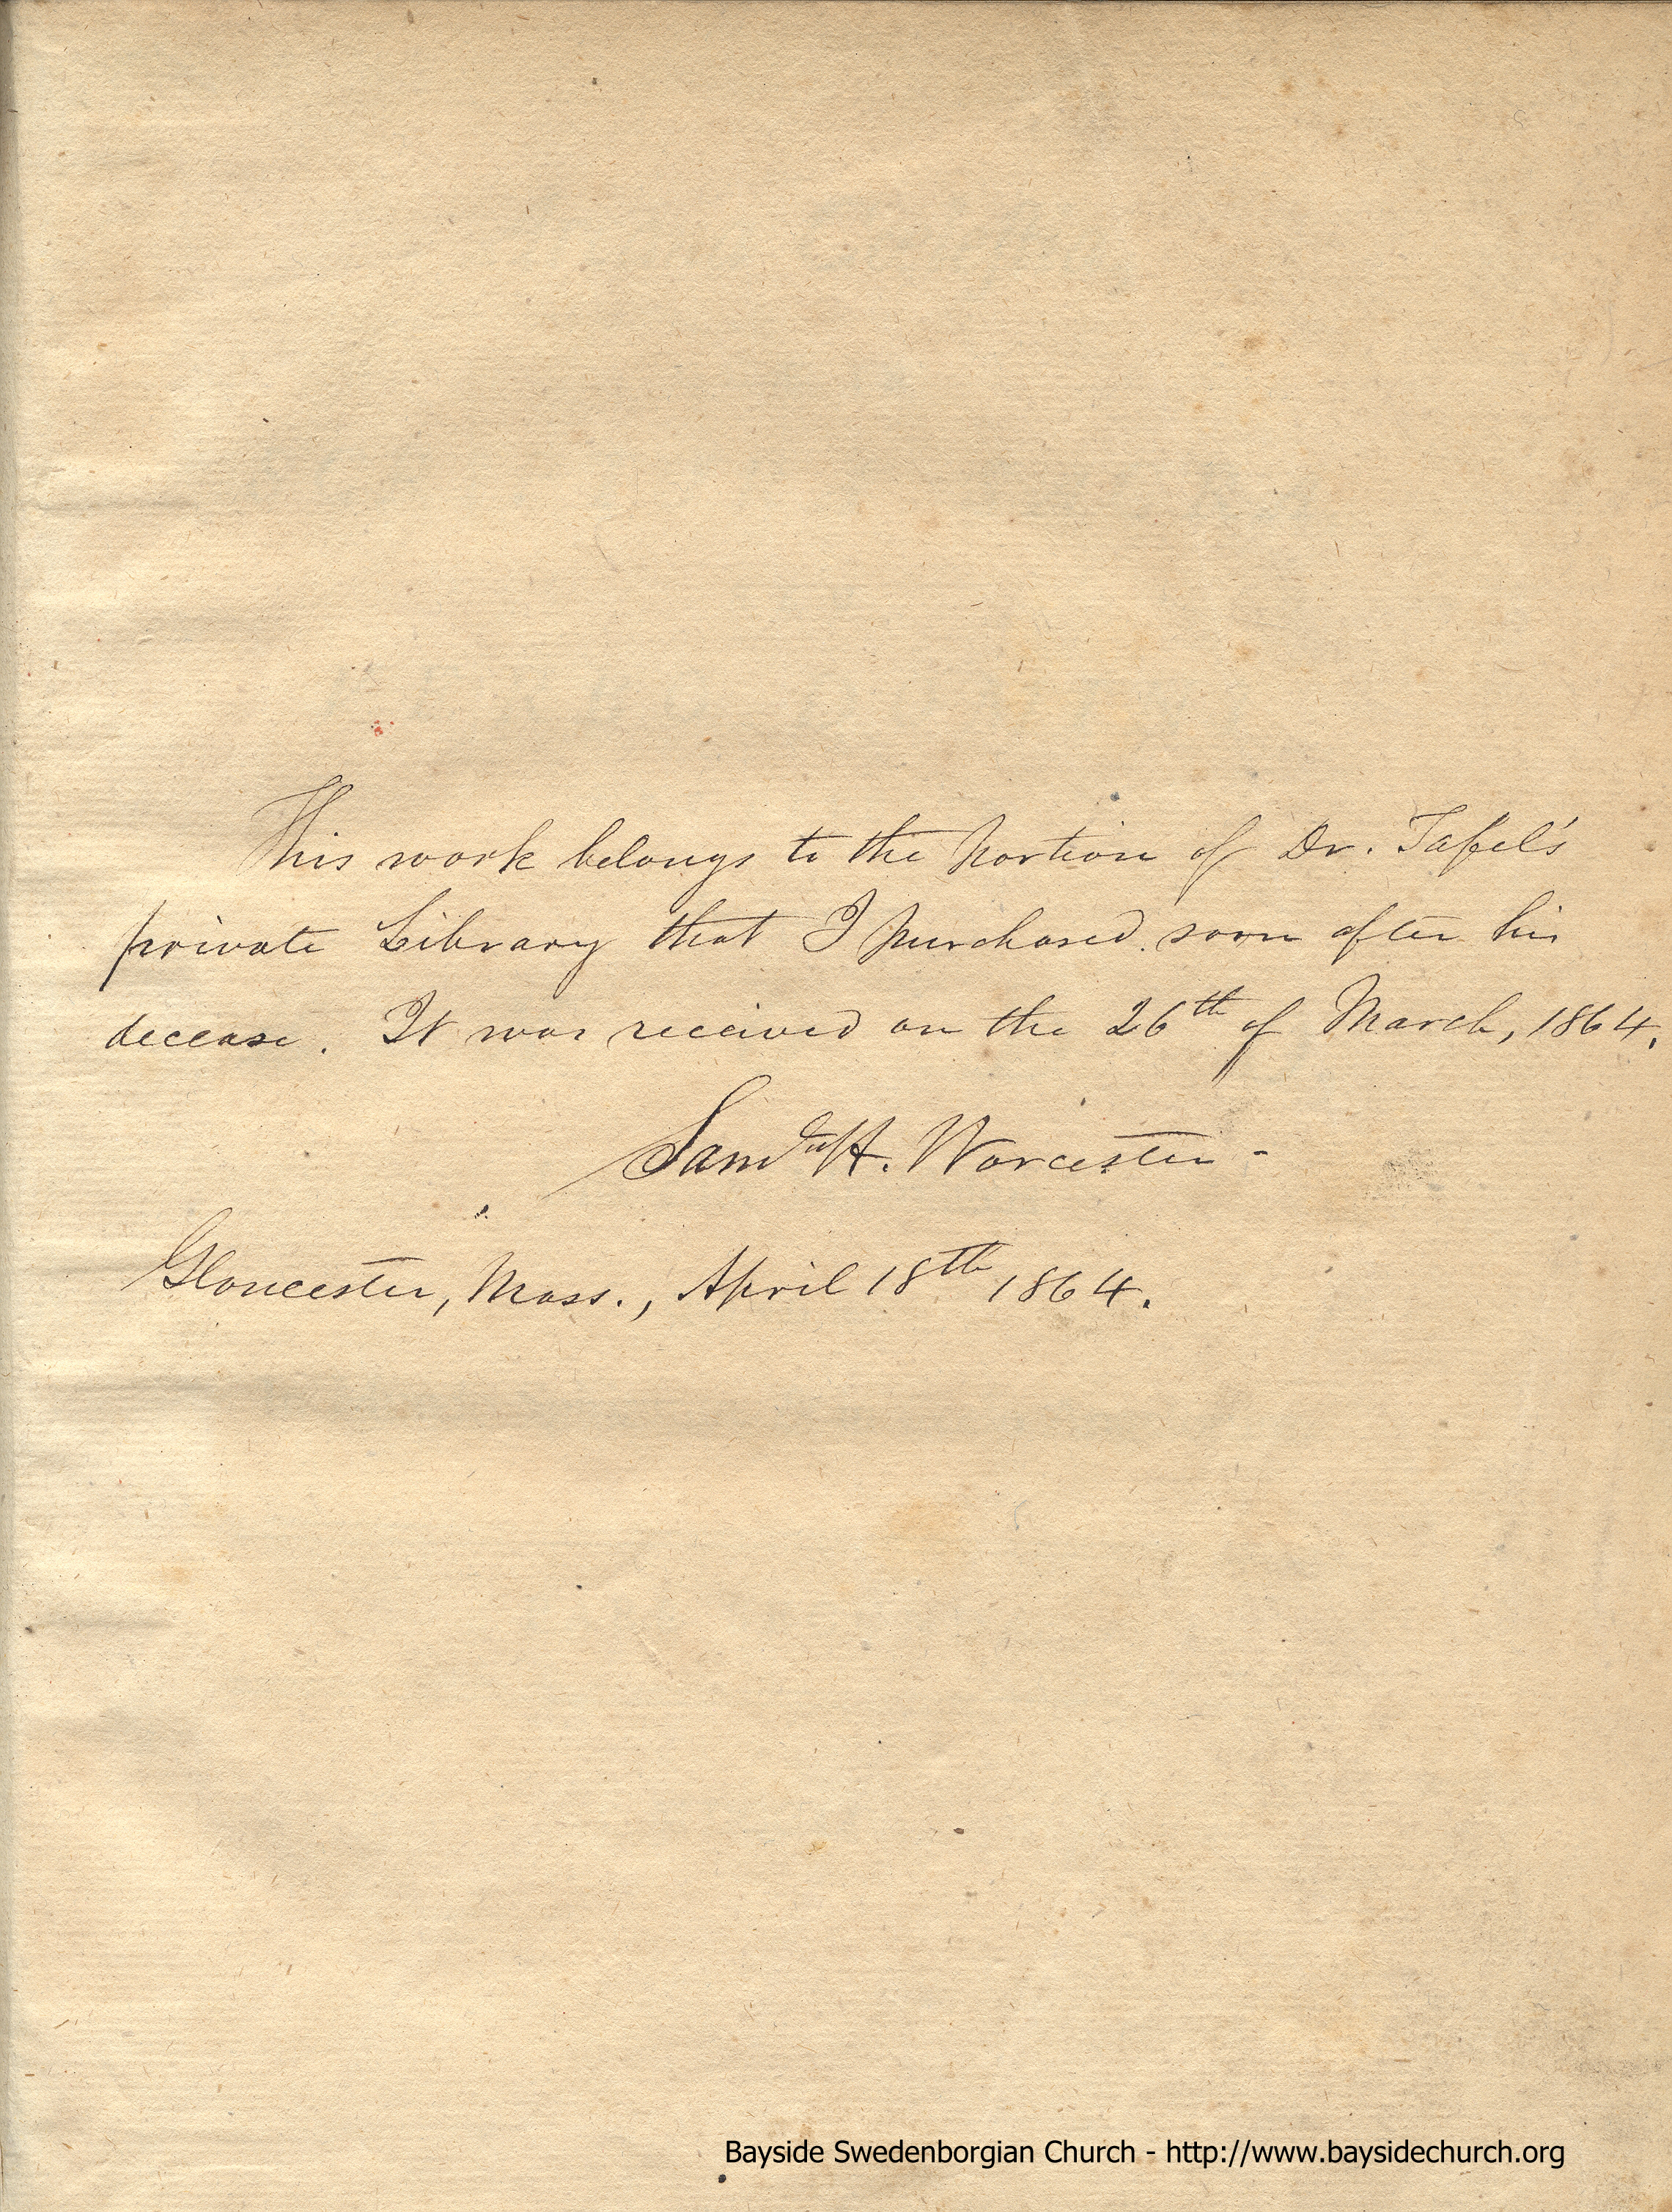 This work belongs to the portion of Dr. Tafel's
private Library that I purchased soon after his
decease. It was received on the 26th of March, 1864.
Saml H. Worcester-
Gloucester, Mass., April 18th 1864.
Bayside Swedenborgian Church - http://www.baysidechurch.org